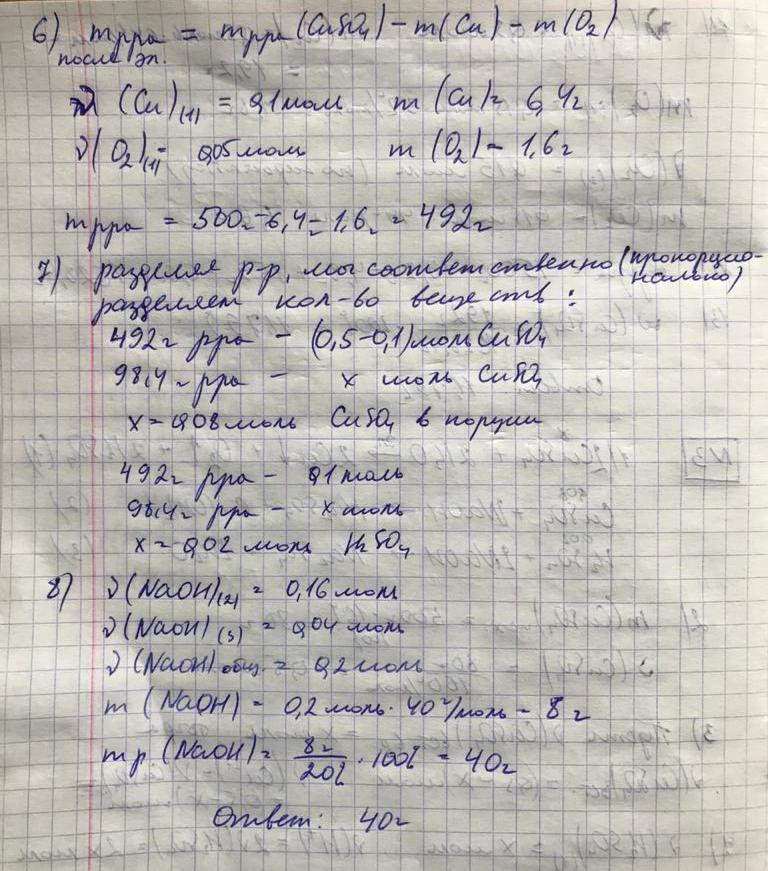 6) mрра = mрра (CuSO₄) – m(Cu) – m(O₂)
после эл.
ν (Cu)₍₁₎ = 0,1 моль m (Cu) = 6,4г
ν(O₂)₍₁₎ = 0,05 моль m (O₂) = 1,6г
mрра = 500г – 6,4г – 1,6г = 492г
7) разделяя р-р, мы соответственно (пропорцио-
нально)
разделяем кол-во веществ:
492г рра – (0,5-0,1)моль CuSO₄
98,4г рра – x моль CuSO₄
x = 0,08 моль CuSO₄ в порции
492г рра – 0,1 моль
98,4г рра – x моль
x = 0,02 моль H₂SO₄
8) ν (NaOH)₍₂₎ = 0,16 моль
ν (NaOH)₍₃₎ = 0,04 моль
ν (NaOH) общ. = 0,2 моль
m (NaOH) = 0,2 моль · 40 г/моль = 8 г
mр (NaOH) = 8г / 20% · 100% = 40г
Ответ: 40г